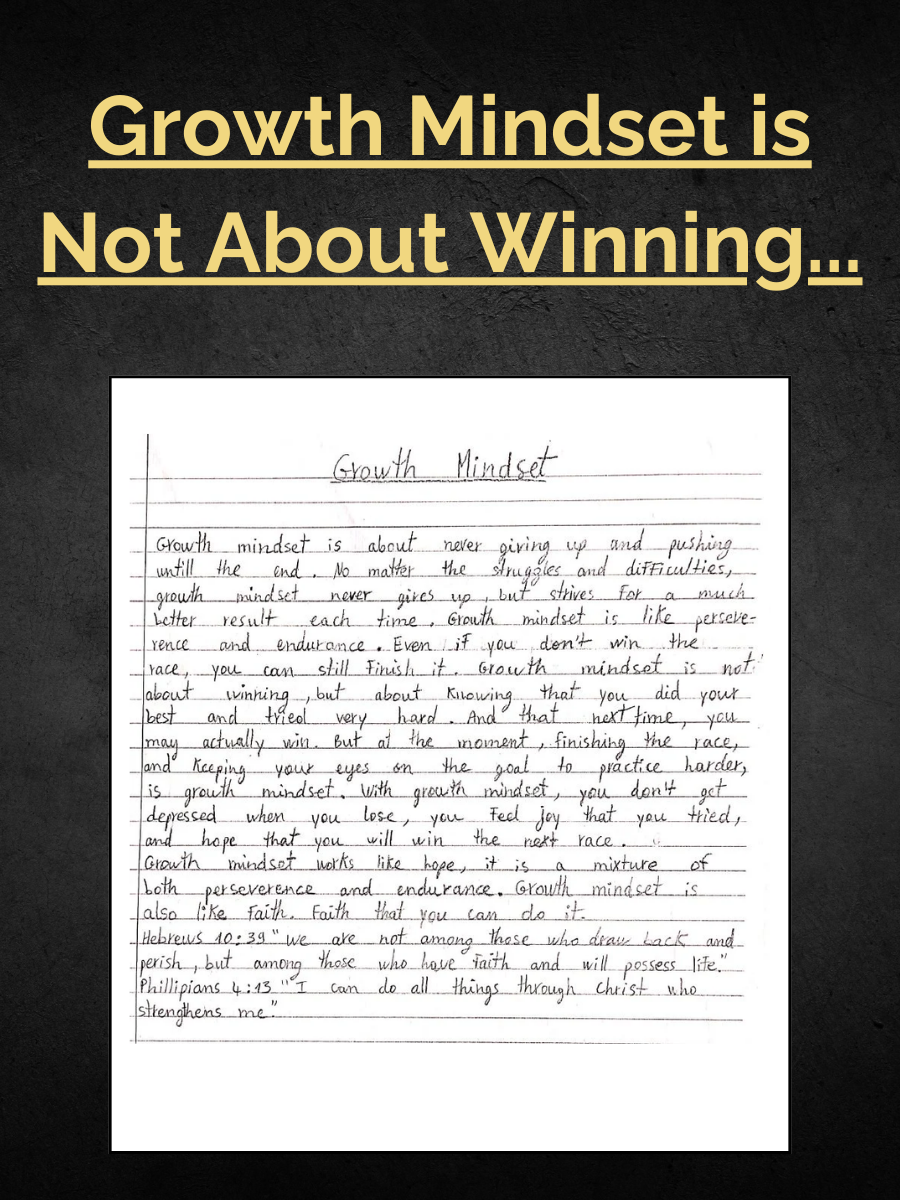 Growth Mindset is
Not About Winning...
Growth Mindset
Growth mindset is about never giving up and pushing
untill the end. No matter the struggles and difficulties,
growth mindset never gives up, but strives for a much
better result each time. Growth mindset is like perseve-
rence and endurance. Even if you don't win the
race, you can still finish it. Growth mindset is not
about winning, but about knowing that you did your
best and tried very hard. And that next time, you
may actually win. But at the moment, finishing the race,
and keeping your eyes on the goal to practice harder,
is growth mindset. With growth mindset, you don't get
depressed when you lose, you feel joy that you tried,
and hope that you will win the next race.
Growth mindset works like hope, it is a mixture of
both perseverence and endurance. Growth mindset is
also like faith. Faith that you can do it.
Hebrews 10:39 "we are not among those who draw back and
perish, but among those who have faith and will possess life."
Phillipians 4:13 "I can do all things through Christ who
strengthens me."